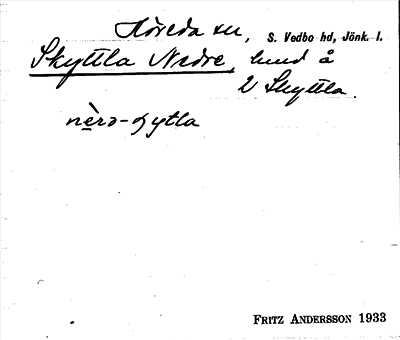 Höreda sn, S. Vedbo hd, Jönk. l.
Skyttla Nedre, hmd å
2 Skyttla.
nè̱rə-ʃytla
FRITZ ANDERSSON 1933